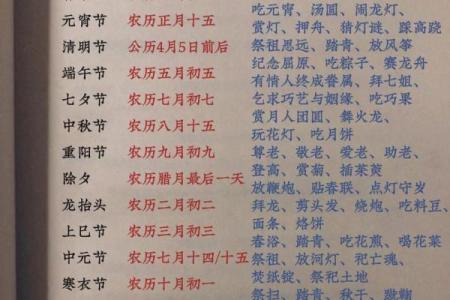 吃元宵、汤圆、闹龙灯、
元宵节 农历正月十五
赏灯、押舟、猜灯谜、踩高跷
清明节 公历4月5日前后
祭祖思远、踏青、放风筝
纪念屈原、吃粽子、赛龙舟
端午节 农历五月初五
有情人终成眷属、拜七姐、
七夕节 农历七月初七
乞求巧艺与姻缘、吃巧果
中秋节 农历八月十五
赏月人团圆、舞火龙、
玩花灯、吃月饼
重阳节 农历九月初九
尊老、敬老、爱老、助老、
登高、赏菊、插茱萸
除夕 农历腊月最后一天
放鞭炮、贴春联、点灯守岁
龙抬头 农历二月初二
拜龙、剪头发、烧炮、吃料豆、
面条、烙饼
上巳节 农历三月初三
春浴、踏青、吃花煎、喝花菜
中元节 农历七月十四/十五
祭祖、放河灯、祀亡魂、
焚纸锭、祭祀土地
寒衣节 农历十月初一
祭扫、踏青、秋千、蹴鞠